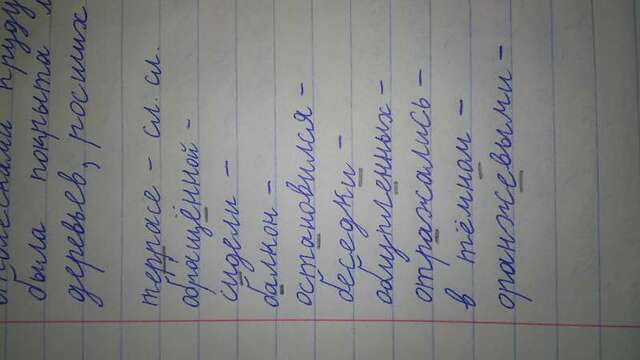 пруду
была покрыта
деревьев, росших
террасе – сл. сл.
обращённой –
сидели –
балкон –
остановился –
беседки –
облупленных –
отражались –
в тёмном –
оранжевыми –